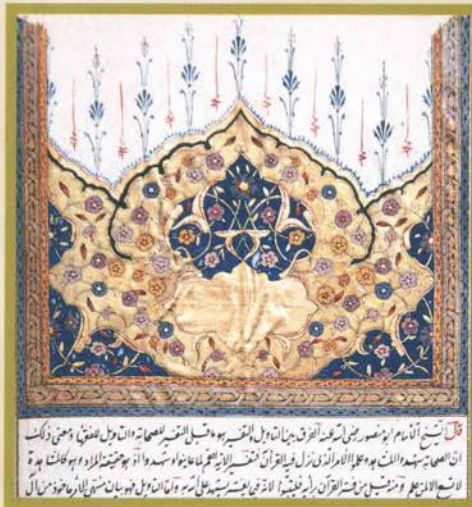 قال الشيخ الامام ابو منصور رضى الله عنه الفرق بين التاويل والتفسير هو ما قيل التفسير للصحابة والتاويل للفقهاء ومعنى ذلك
ان الصحابة شهدوا المشاهد وعلموا الامر الذى نزل فيه القرآن فتفسير الآية لهم لما عاينوا وشهدوا اذ هو حقيقة المراد وهو كالمشاهدة
لا تسع الا لمن علم ومنه قيل من فسر القرآن برأيه فليتبوأ لانه فيما يفسر يشهد على الله به واما التاويل فهو بيان منتهى الامر ماخوذ من آل